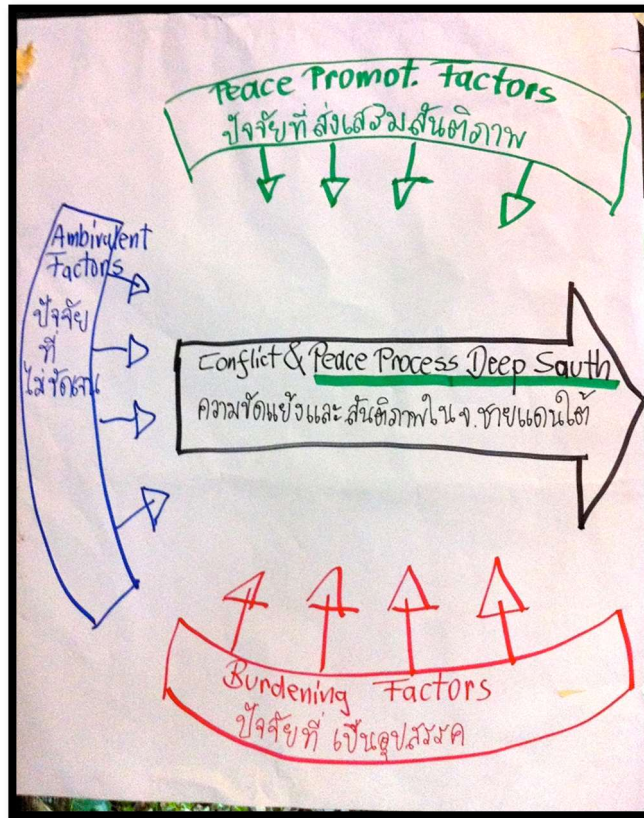 Peace Promot. Factors
ปัจจัยที่ส่งเสริมสันติภาพ
Ambivalent
Factors
ปัจจัย
ที่
ไม่ชัดเจน
Conflict & Peace Process Deep Sauth
ความขัดแย้งและสันติภาพใน จ.ชายแดนใต้
Burdening Factors
ปัจจัยที่ เป็นอุปสรรค